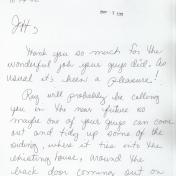 Thank you so much for the
wonderful job your guys did. As
usual it's been a pleasure!
Ray will probably be calling
you in the near future so
maybe one of your guys can come
out and tidy up some of the
siding, where it ties into the
existing house, around the
back door coming out on